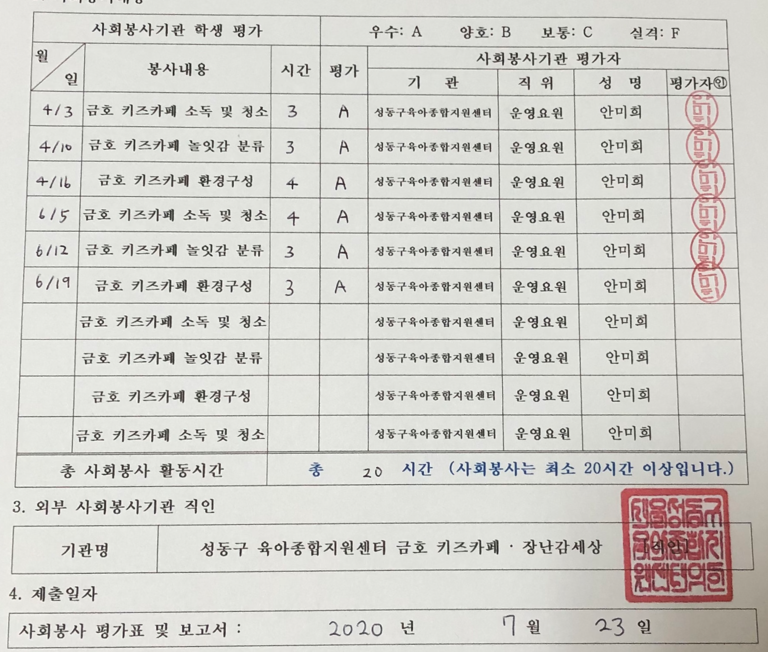 사회봉사기관 학생 평가 우수: A 양호: B 보통: C 실격: F
월 일 봉사내용 시간 평가 사회봉사기관 평가자
기 관 직 위 성 명 평가자㊞
4/3 금호 키즈카페 소독 및 청소 3 A 성동구육아종합지원센터 운영요원 안미희
4/10 금호 키즈카페 놀잇감 분류 3 A 성동구육아종합지원센터 운영요원 안미희
4/16 금호 키즈카페 환경구성 4 A 성동구육아종합지원센터 운영요원 안미희
6/5 금호 키즈카페 소독 및 청소 4 A 성동구육아종합지원센터 운영요원 안미희
6/12 금호 키즈카페 놀잇감 분류 3 A 성동구육아종합지원센터 운영요원 안미희
6/19 금호 키즈카페 환경구성 3 A 성동구육아종합지원센터 운영요원 안미희
금호 키즈카페 소독 및 청소 성동구육아종합지원센터 운영요원 안미희
금호 키즈카페 놀잇감 분류 성동구육아종합지원센터 운영요원 안미희
금호 키즈카페 환경구성 성동구육아종합지원센터 운영요원 안미희
금호 키즈카페 소독 및 청소 성동구육아종합지원센터 운영요원 안미희
총 사회봉사 활동시간 총 20 시간 (사회봉사는 최소 20시간 이상입니다.)
3. 외부 사회봉사기관 직인
기관명 성동구 육아종합지원센터 금호 키즈카페 · 장난감세상 [직인]
4. 제출일자
사회봉사 평가표 및 보고서 : 2020 년 7 월 23 일